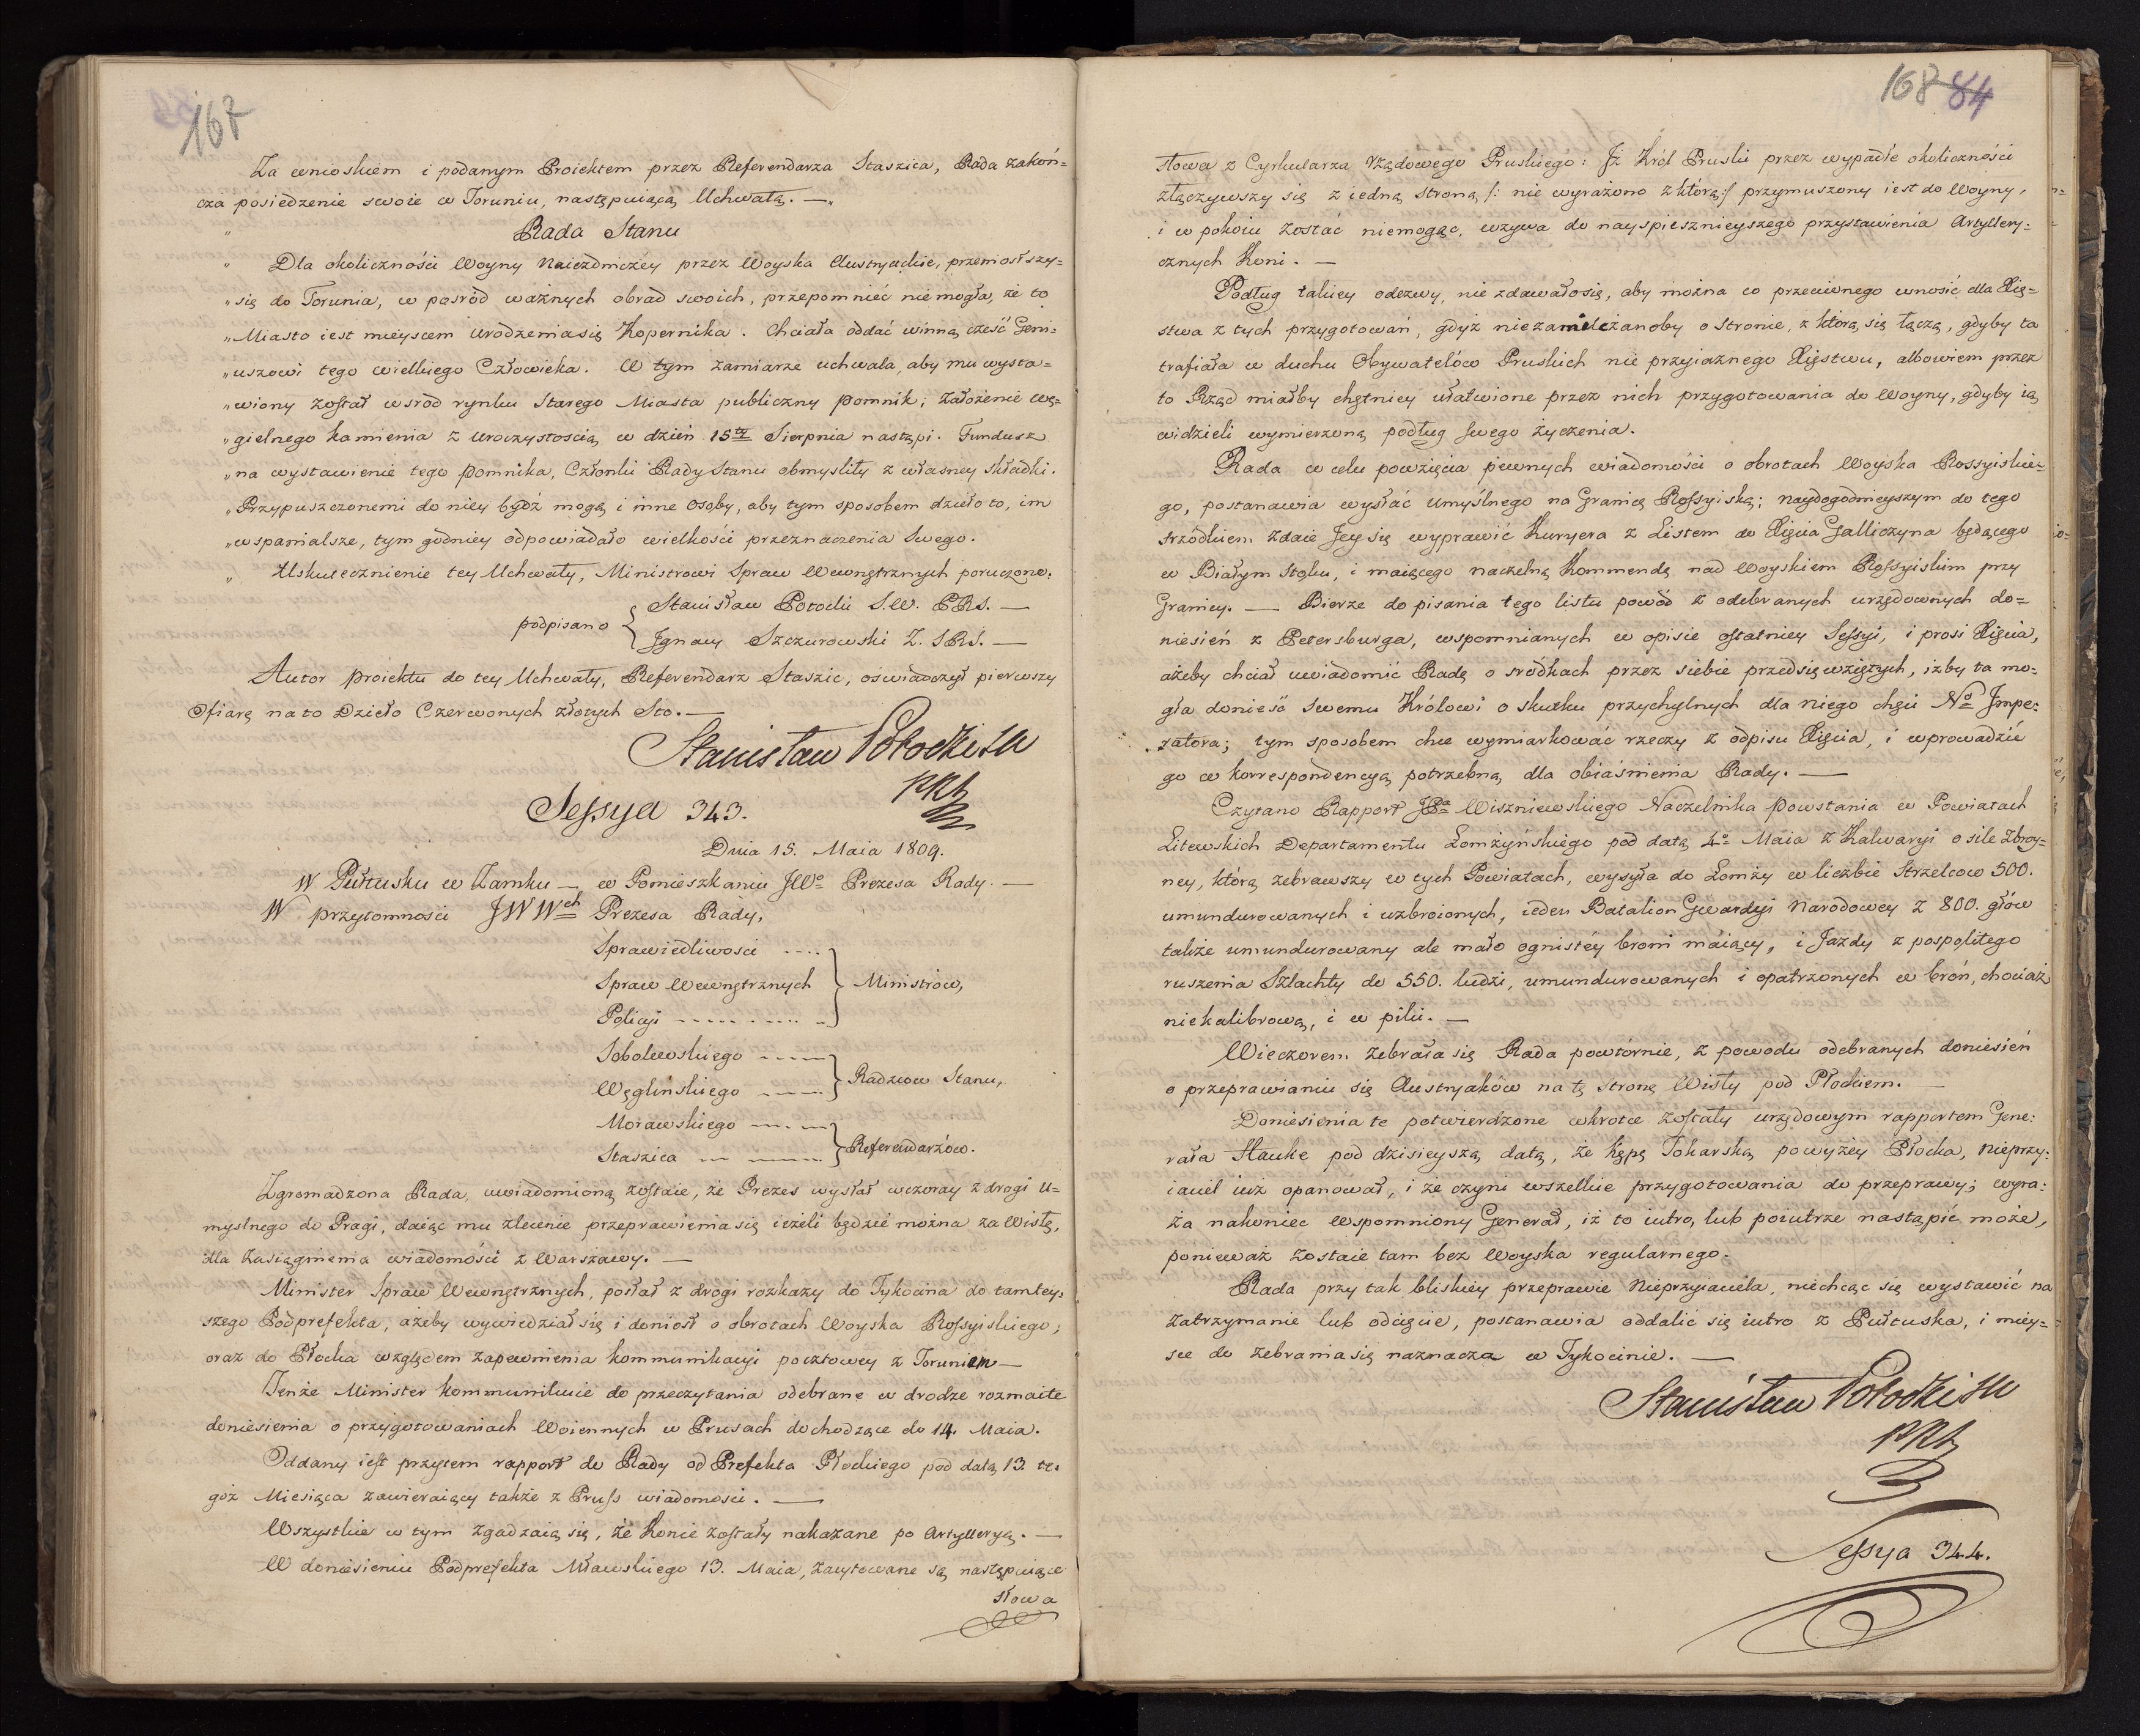 167
Za wnioskiem i podanym Proiektem przez Referendarza Staszica, Rada zakoń=
cza posiedzenie swoie w Toruniu, następuiącą Uchwałą. —„
„ Rada Stanu
„ Dla okoliczności Woyny Naiezdniczéy przez Woyska Austryackie, przeniosłszy=
„się do Torunia, w pośród ważnych obrad swoich, przepomnieć nie mogła, że to
„Miasto iest mieyscem urodzenia się Kopernika. Chciała oddać winną cześć Geni=
„uszowi tego wielkiego Człowieka. W tym zamiarze uchwala, aby mu wysta=
„wiony został wsród rynku Starego Miasta publiczny pomnik; założenie wę=
„gielnego kamienia z uroczystością w dzień 15ty Sierpnia nastąpi. Fundusz
„na wystawienie tego pomnika, Członki Rady Stanu obmyslily z własney składki.
„Przypuszczonemi do niey bydź mogą i inne osoby, aby tym sposobem dzieło to, im
„wspanialsze, tym godniey odpowiadało wielkości przeznaczenia Swego.
„ Uskutecznienie tey Uchwały, Ministrowi Spraw Wewnętrznych poruczono.
podpisano { Stanisław Potocki S.W. PRS. —
Jgnacy Szczurowski Z. SRS. —
Autor proiektu do tey Uchwały, Referendarz Staszic, oświadczył pierwszy
Ofiarę na to Dzieło Czerwonych złotych Sto. —
Stanisław Potocki SW
PRS
Sessya 343.
Dnia 15. Maia 1809.
W Pułtusku w Zamku —, w Pomieszkaniu JWo Prezesa Rady. —
W przytomności JWWch Prezesa Rady,
Sprawiedliwosci ....
Spraw Wewnętrznych } Ministrów,
Policyi ..........
Sobolewskiego .....
Węglinskiego ..... } Radzcow Stanu,
Morawskiego .....
Staszica ........ } Referendarzów.
Zgromadzona Rada, uwiadomioną zostaie, że Prezes wysłał wczoray z drogi u=
myslnego do Pragi, daiąc mu zlecenie przeprawienia się ieżeli będzie można za Wisłę,
dla zasiągnienia wiadomości z Warszawy. —
Minister Spraw Wewnętrznych, posłał z drogi rozkazy do Tykocina do tamtey=
szego Podprefekta, ażeby wywiedział się i doniosł o obrotach Woyska Rossyiskiego;
oraz do Płocka względem zapewnienia kommunikacyi pocztowey z Toruniem —
Tenże Minister kommunikuie do przeczytania odebrane w drodze rozmaite
doniesienia o przygotowaniach Woiennych w Prusach dochodzące do 14. Maia.
Oddany iest przytem rapport do Rady od Prefekta Płockiego pod datą 13. te=
goż Miesiąca zawieraiący także z Pruss wiadomosci. —
Wszystkie w tym zgadzaią się, że Konie zostały nakazane po Artylleryą. —
W doniesieniu Podprefekta Mławskiego 13. Maia, zacytowane są następuiące
słowa
168 84
słowa z Cyrkularza Rządowego Pruskiego: Jż Król Pruski przez wypadłe okoliczności
złączywszy się z iedną stroną /: nie wyrażono z którą :/ przymuszony iest do Woyny,
i w pokoiu zostać niemogąc, wzywa do nayspiesznieyszego przystawienia Artyllery=
cznych Koni. —
Podług takiey odezwy, nie zdawało się, aby można co przeciwnego wnosić dla Xię=
stwa z tych przygotowań, gdyż niezamilczanoby o stronie, z którą się łączą, gdyby ta
trafiała w duchu Obywatelów Pruskich nie przyiaznego Xięstwu, albowiem przez
to Rząd miałby chętniey ułatwione przez nich przygotowania do Woyny, gdyby ią
widzieli wymierzoną podług swego życzenia.
Rada w celu powzięcia pewnych wiadomości o obrotach Woyska Rossyiskie=
go, postanawia wysłać umyślnego na Granicę Rossyiską; naydogodnieyszym do tego
srzódkiem zdaie Jey się wyprawić Kuryera z Listem do Xięcia Galliczyna będącego
w Białym Stoku, i maiącego naczelną Kommendę nad Woyskiem Rossyiskim przy
Granicy. — Bierze do pisania tego listu powód z odebranych urzędownych do=
niesień z Petersburga, wspomnianych w opisie ostatniey Sessyi, i prosi Xięcia,
ażeby chciał uwiadomić Radę o sródkach przez siebie przedsięwziętych, izby ta mo=
gła donieść swemu Królowi o skutku przychylnych dla niego chęci No Jmpe=
ratora; tym sposobem chce wymiarkować rzeczy z odpisu Xięcia, i wprowadzić
go w korrespondencyą potrzebną dla obiaśnienia Rady. —
Czytano Rapport JPa Wiszniewskiego Naczelnika powstania w Powiatach
Litewskich Departamentu Łomżyńskiego pod datą 4o Maia z Kalwaryi o sile zbroy=
ney, którą zebrawszy w tych Powiatach, wysyła do Łomży w liczbie Strzelcow 500.
umundurowanych i uzbroionych, ieden Batalion Gwardyi Narodowey z 800. głów
także umundurowany ale mało ognistéy broni máiący, i Jazdy z pospolitego
ruszenia Szlachty do 550. ludzi, umundurowanych i opatrzonych w broń, chociaż
niekalibrową, i w piki. —
Wieczorem zebrała się Rada powtórnie, z powodu odebranych doniesień
o przeprawianiu się Austryaków na tę stronę Wisły pod Płockiem. —
Doniesienia te potwierdzone wkrotce zostały urzędowym rapportem Gene=
rała Hauke pod dzisieyszą datą, że kępę Tokarską powyżey Płocka, Nieprzy=
iaciel iuż opanował, i że czyni wszelkie przygotowania do przeprawy; wyra=
ża nakoniec wspomniony Generał, iż to iutro, lub poiutrze nastąpić może,
ponieważ zostaie tam bez Woyska regularnego.
Rada przy tak bliskiey przeprawie Nieprzyiaciela, niechcąc się wystawić na
zatrzymanie lub odcięcie, postanawia oddalić się iutro z Pułtuska, i miey=
sce do zebrania się naznacza w Tykocinie. —
Stanisław Potocki SW
PRS
Sessya 344.